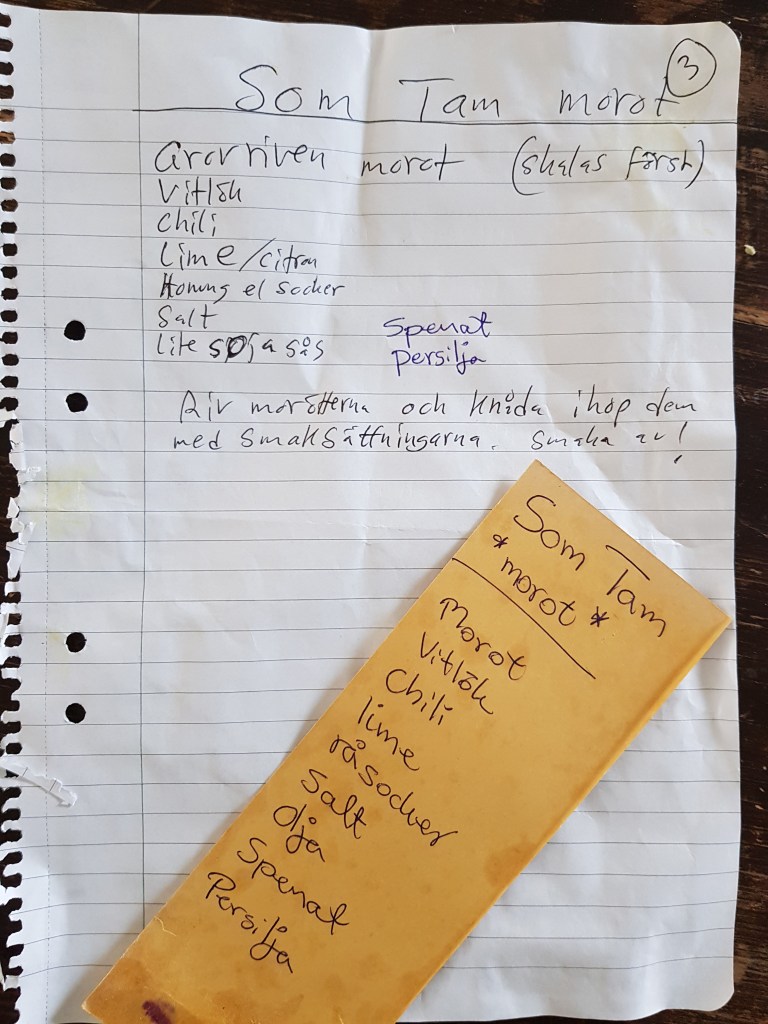 3
Som Tam morot
Grovriven morot (skalas först)
Vitlök
Chili
Lime/citron
Honung el socker
Salt
Lite soja sås
Spenat
Persilja
Riv morötterna och knåda ihop dem
med smaksättningarna. Smaka av!
Som Tam
* morot *
Morot
Vitlök
Chili
lime
råsocker
Salt
Olja
Spenat
Persilja